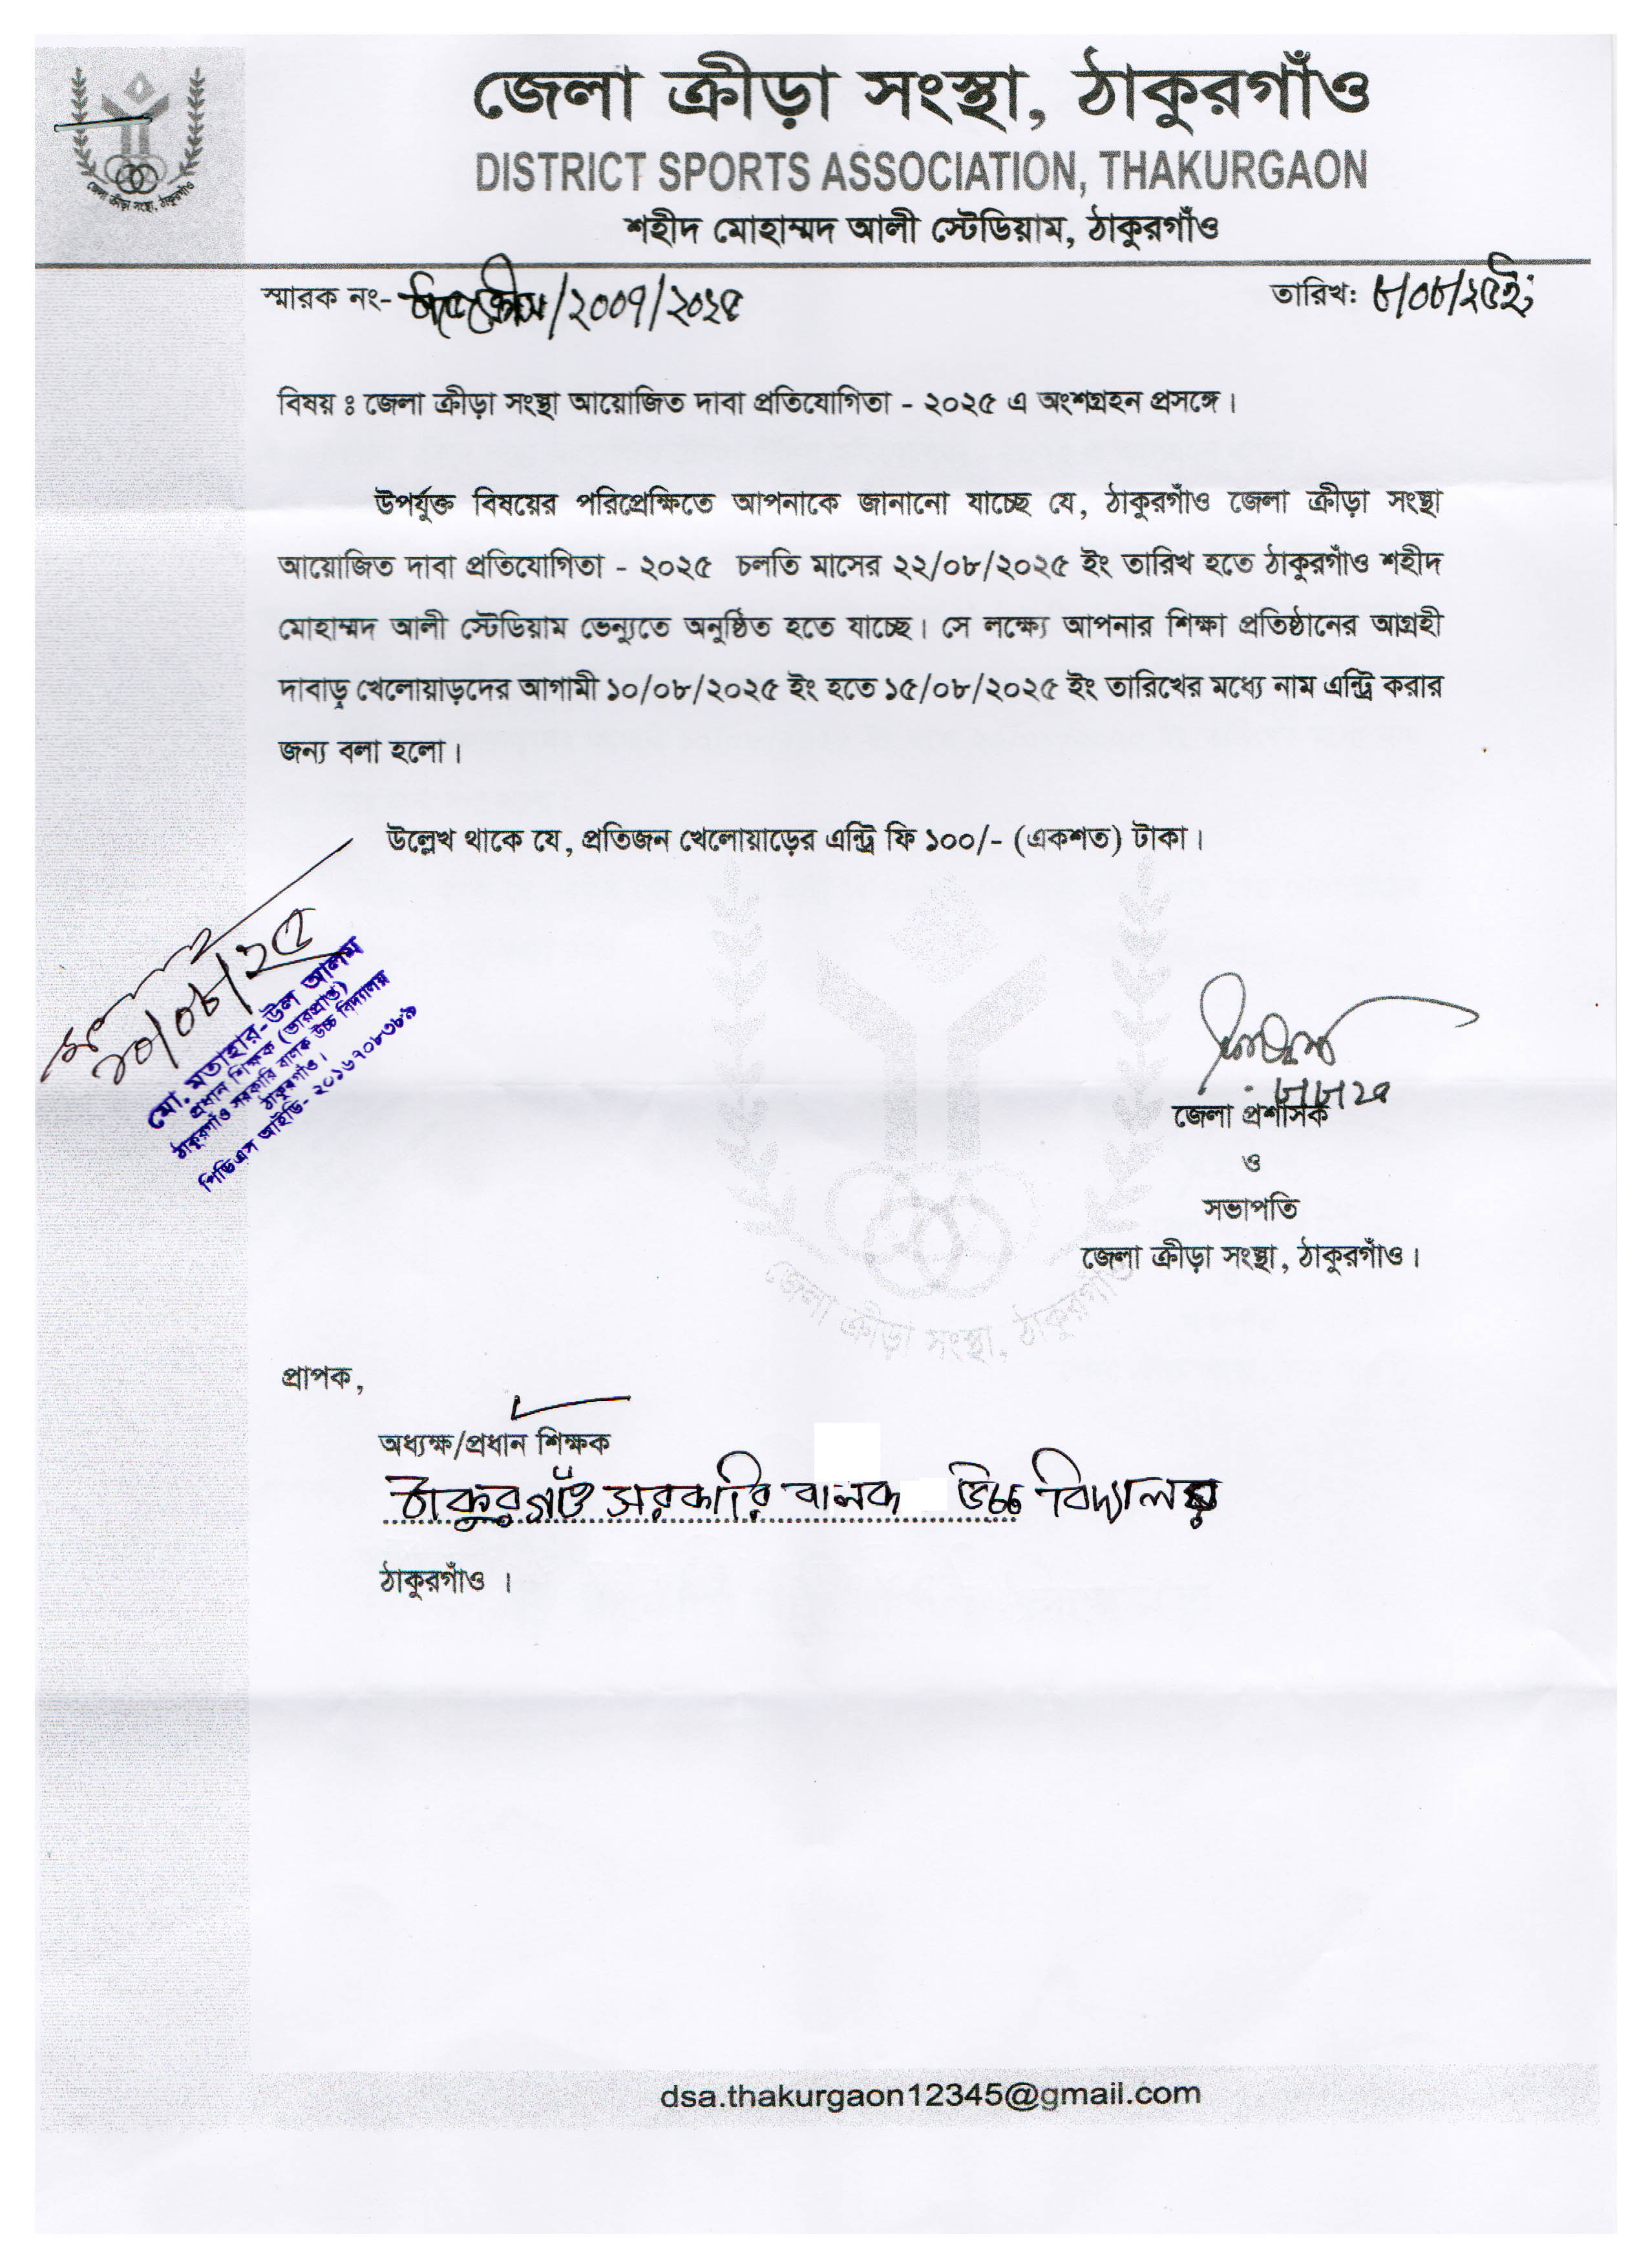 জেলা ক্রীড়া সংস্থা, ঠাকুরগাঁও
জেলা ক্রীড়া সংস্থা, ঠাকুরগাঁও
DISTRICT SPORTS ASSOCIATION, THAKURGAON
শহীদ মোহাম্মদ আলী স্টেডিয়াম, ঠাকুরগাঁও
স্মারক নং- /২০০৭/২০২৫
তারিখ: ৮/০৮/২৫ইং
বিষয় ঃ জেলা ক্রীড়া সংস্থা আয়োজিত দাবা প্রতিযোগিতা - ২০২৫ এ অংশগ্রহন প্রসঙ্গে।
উপর্যুক্ত বিষয়ের পরিপ্রেক্ষিতে আপনাকে জানানো যাচ্ছে যে, ঠাকুরগাঁও জেলা ক্রীড়া সংস্থা
আয়োজিত দাবা প্রতিযোগিতা - ২০২৫ চলতি মাসের ২২/০৮/২০২৫ ইং তারিখ হতে ঠাকুরগাঁও শহীদ
মোহাম্মদ আলী স্টেডিয়াম ভেন্যুতে অনুষ্ঠিত হতে যাচ্ছে। সে লক্ষ্যে আপনার শিক্ষা প্রতিষ্ঠানের আগ্রহী
দাবাড়ু খেলোয়াড়দের আগামী ১০/০৮/২০২৫ ইং হতে ১৫/০৮/২০২৫ ইং তারিখের মধ্যে নাম এন্ট্রি করার
জন্য বলা হলো।
উল্লেখ থাকে যে, প্রতিজন খেলোয়াড়ের এন্ট্রি ফি ১০০/- (একশত) টাকা।
১০/০৮/২৫
মো. মতাহার-উল আলম
প্রধান শিক্ষক (ভারপ্রাপ্ত)
ঠাকুরগাঁও সরকারি বালক উচ্চ বিদ্যালয়
ঠাকুরগাঁও।
পিডিএস আইডি- ২০১৬৭০৮৩৮৯
৮/৮/২৫
জেলা প্রশাসক
ও
সভাপতি
জেলা ক্রীড়া সংস্থা, ঠাকুরগাঁও।
জেলা ক্রীড়া সংস্থা, ঠাকুরগাঁও
প্রাপক,
অধ্যক্ষ/প্রধান শিক্ষক
ঠাকুরগাঁও সরকারি বালক উচ্চ বিদ্যালয়
ঠাকুরগাঁও ।
dsa.thakurgaon12345@gmail.com